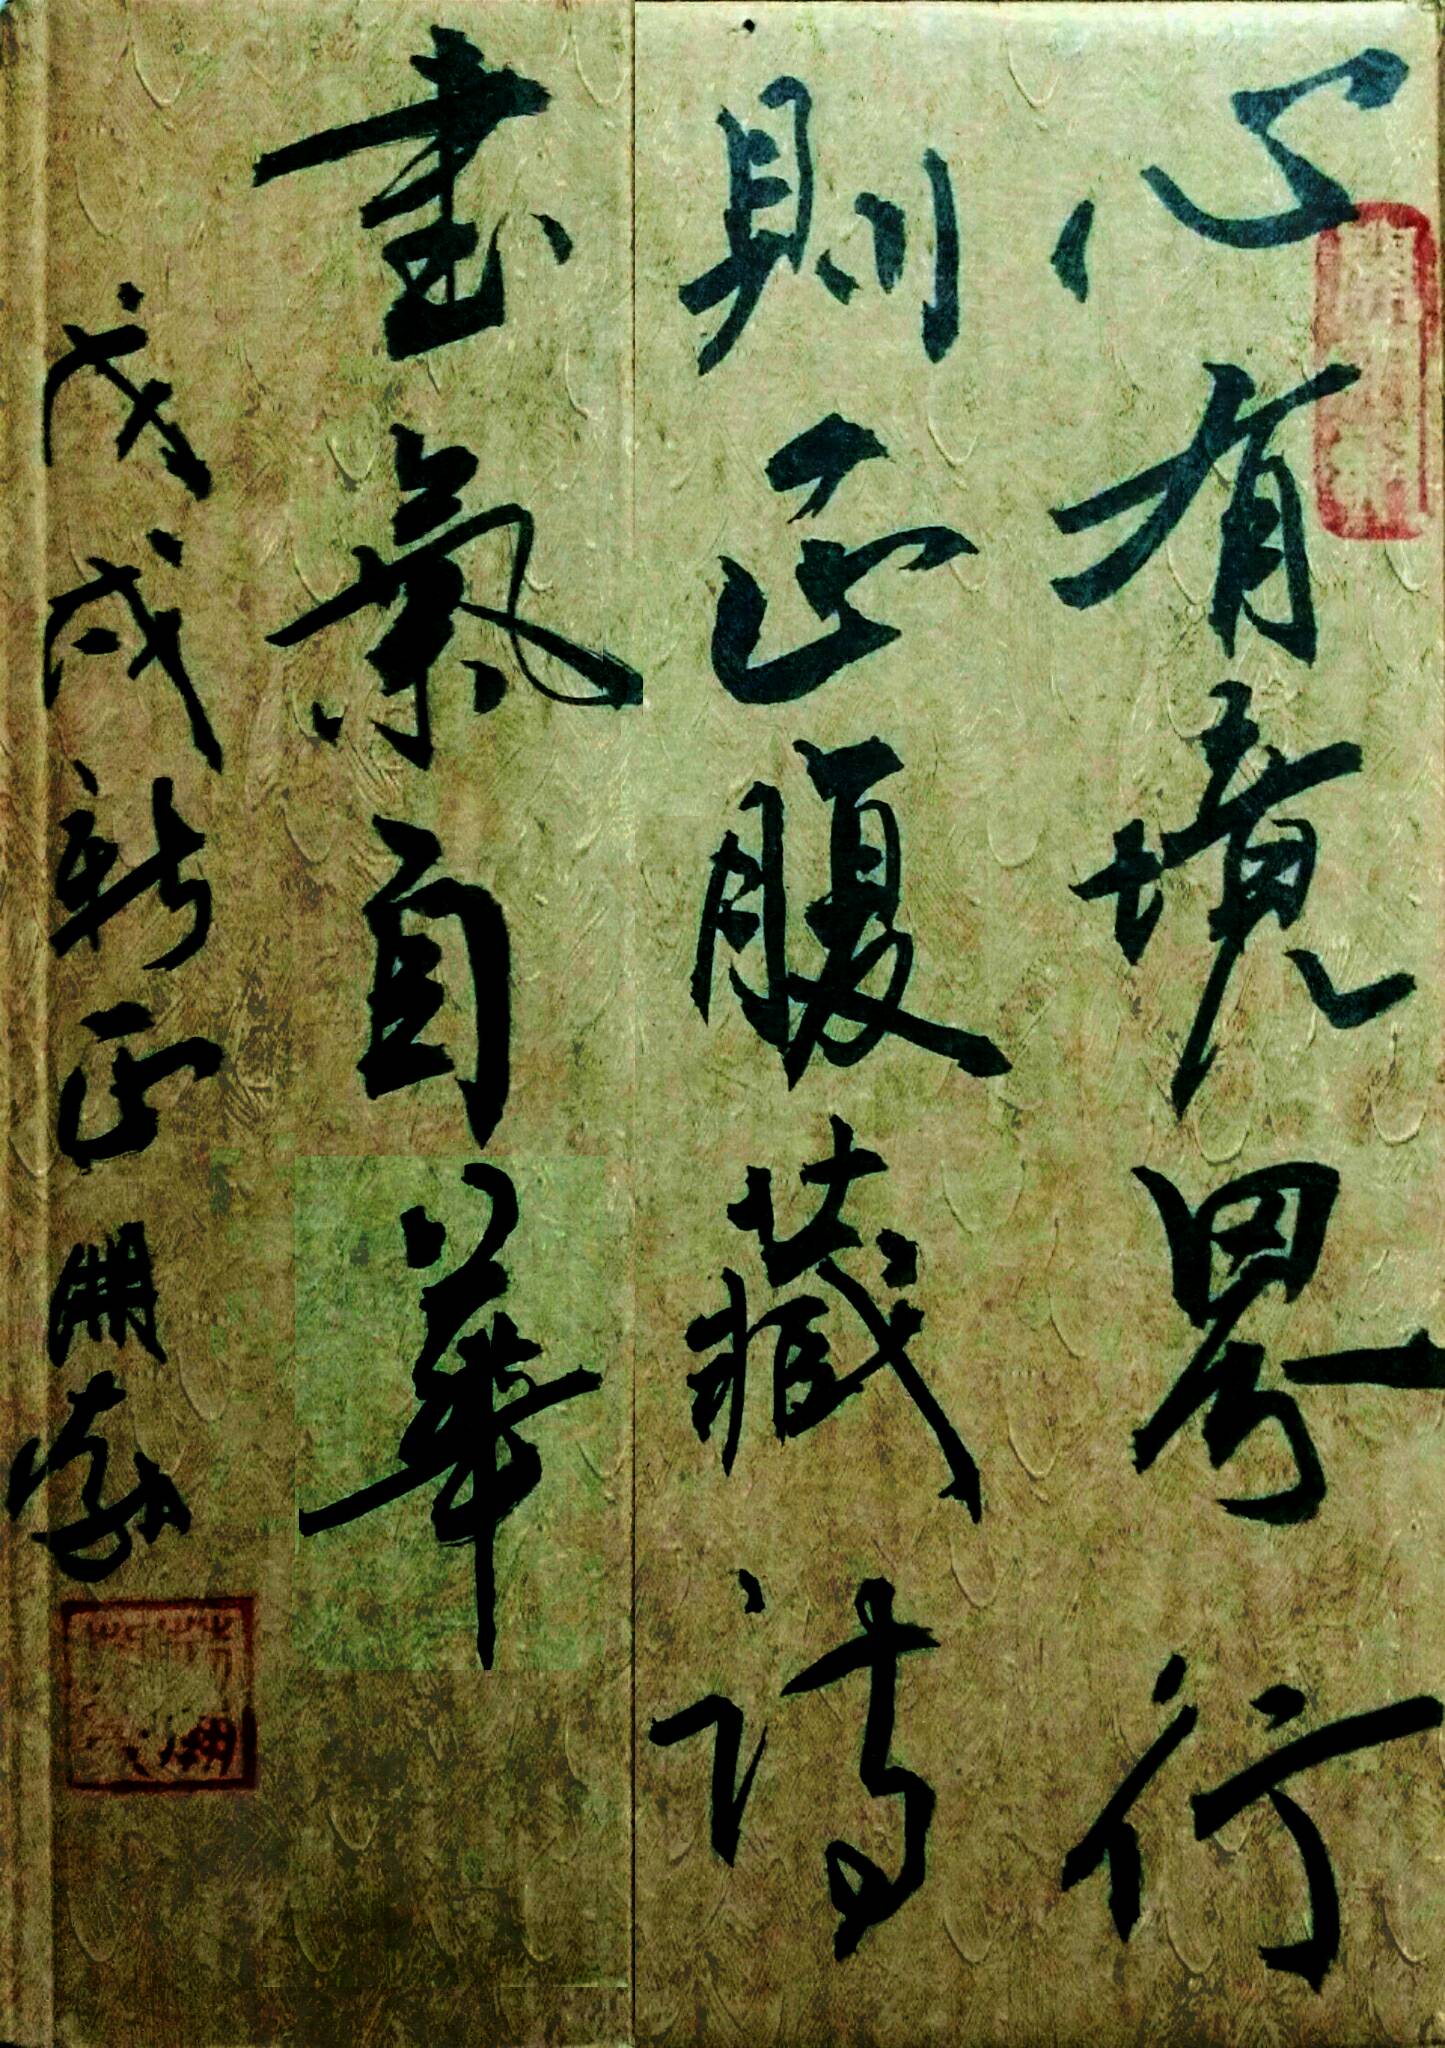 心有境界行
則正腹藏詩
書氣自華
戊戌新正開